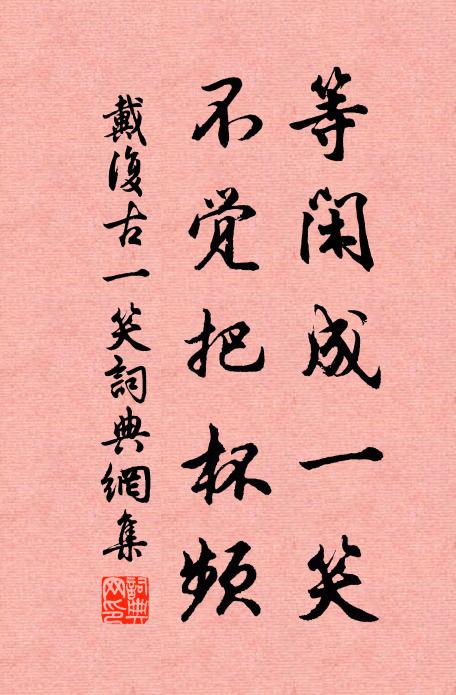 等闲成一笑
不觉把杯频
戴復古一笑詞典網集
詞典网印